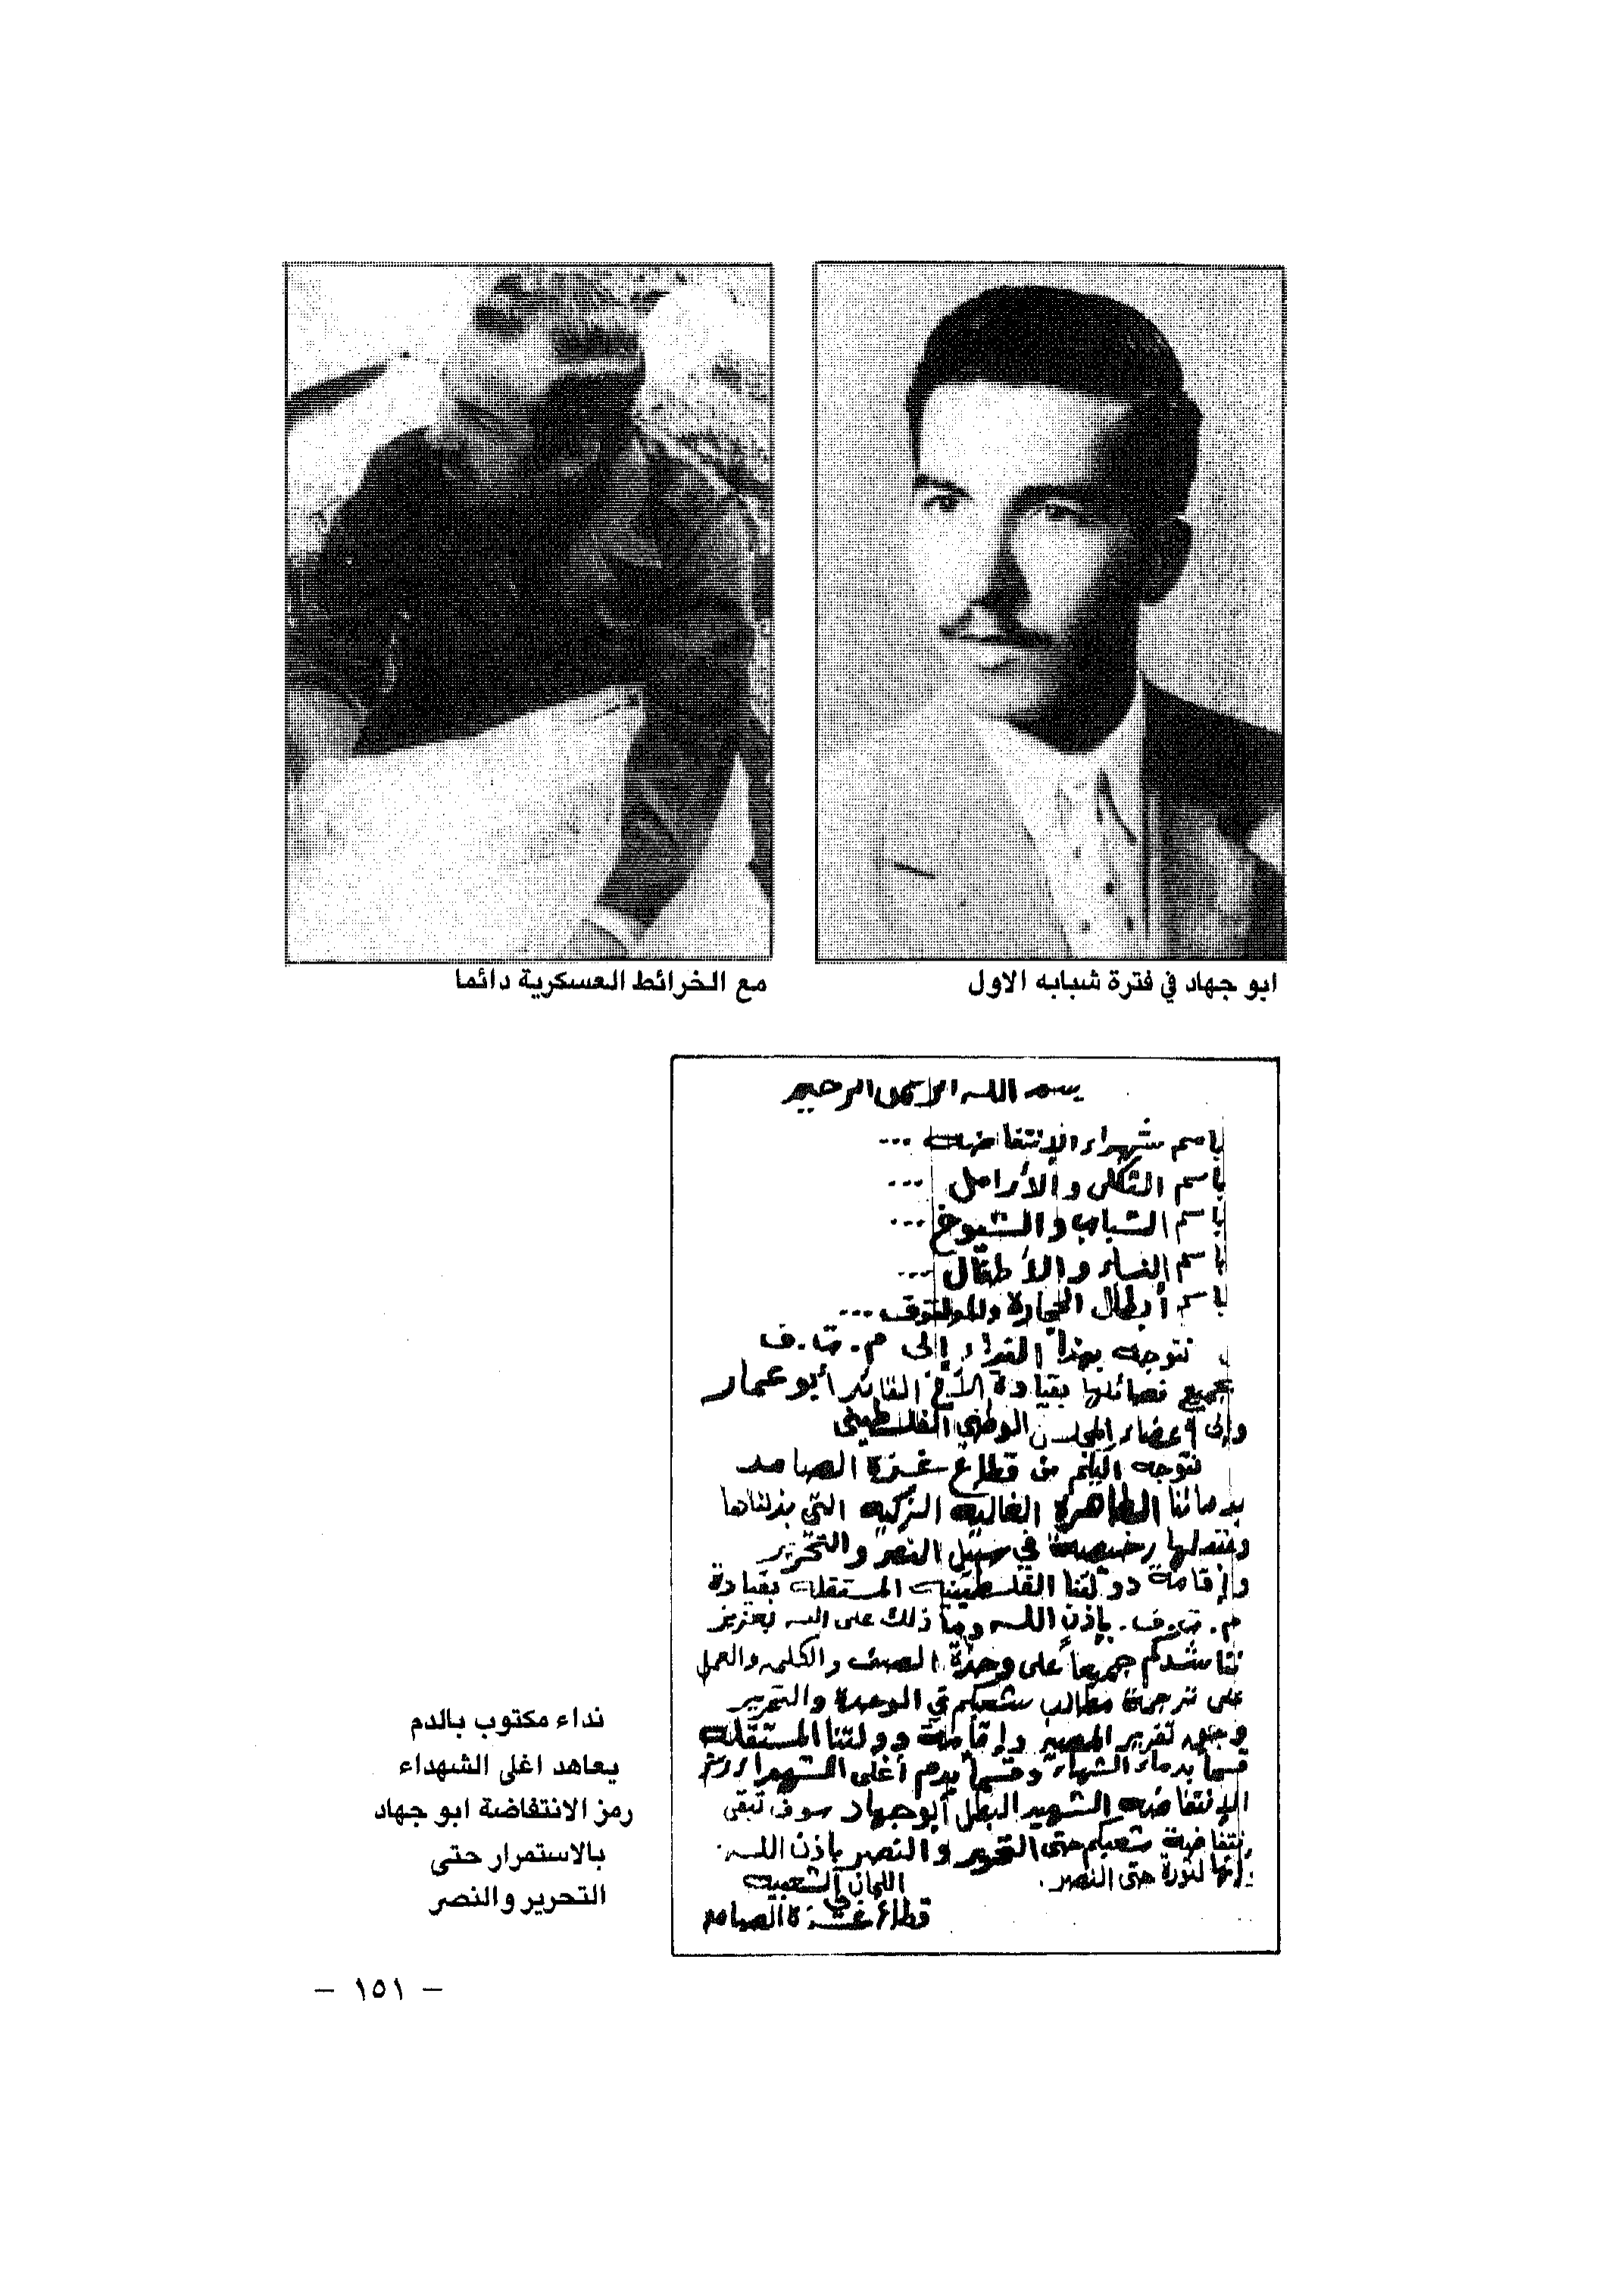 ابو جهاد في فترة شبابه الاول
مع الخرائط العسكرية دائما
بسم الله الرحمن الرحيم
باسم شهداء الإنتفاضه ...
باسم الثكلى والأرامل ...
باسم الشباب والشيوخ ...
باسم النساء والأطفال ...
باسم أبطال الحجارة والمولتوف ...
نتوجه بهذا النداء إلى م.ت.ف
بجميع فصائلها بقيادة الأخ القائد أبو عمار
وإلى أعضاء المجلس الوطني الفلسطيني
نتوجه اليكم من قطاع غزة الصامد
بدمائنا الطاهرة الغاليه الزكيه التي بذلناها
رخيصة في سبيل النصر والتحرير
وإقامة دولتنا الفلسطينيه المستقله بقيادة
م.ت.ف. بإذن الله وما ذلك على الله بعزيز
نناشدكم جميعاً على وحدة الصف والكلمه والعمل
على ترجمة مطالب شعبكم في الوحدة والتحرير
وحق تقرير المصير وإقامة دولتنا المستقله
قسما بدماء الشهداء وقسما بدم أغلى الشهداء رمز
الإنتفاضه الشهيد البطل أبو جهاد سوف تبقى
إنتفاضة شعبكم حتى التحرير والنصر بإذن الله.
وإنها لثورة حتى النصر.
اللجان الشعبيه
في
قطاع غزة الصامد
نداء مكتوب بالدم
يعاهد اغلى الشهداء
رمز الانتفاضة ابو جهاد
بالاستمرار حتى
التحرير والنصر
– ١٥١ –